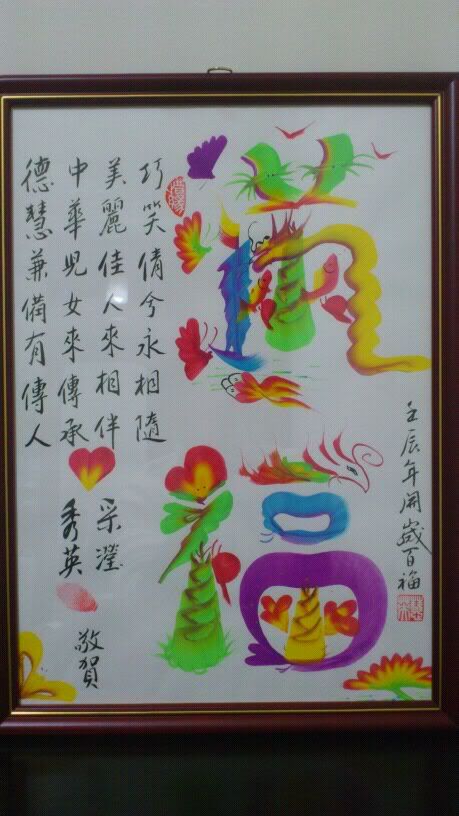 壬辰年開歲百福
滿福
巧笑倩兮永相隨
美麗佳人來相伴
中華兒女來傳承
德慧兼備有傳人
采瀅
秀英
敬賀